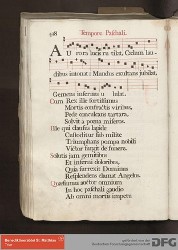 Tempore Paschali.
AUrora lucis rutilat, Cælum lau-
dibus intonat: Mundus exultans jubilat,
Gemens infernus ululat.
Cum Rex ille fortissimus
Mortis confractis viribus,
Pede conculcans tartara,
Solvit a pœna miseros.
Ille qui clausus lapide
Custoditur sub milite
Triumphans pompa nobili
Victor surgit de funere.
Solutis jam gemitibus
Et inferni doloribus,
Quia surrexit Dominus
Resplendens clamat Angelus.
Quæsumus auctor omnium
In hoc paschali gaudio
Ab omni mortis impetu
DFG